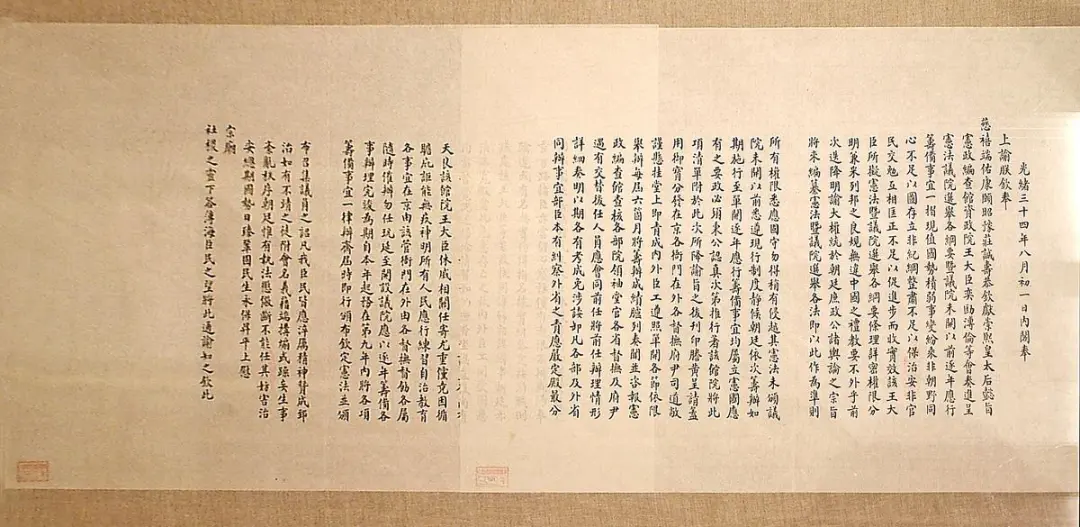 光緒三十四年八月初一日內閣奉
上諭朕欽奉
慈禧端佑康頤昭豫莊誠壽恭欽獻崇熙皇太后懿旨
憲政編查館資政院王大臣奕劻溥倫等會奏進呈
憲法議院選舉各綱要暨議院未開以前逐年應行
籌備事宜一摺現值國勢積弱事變紛乘非朝野同
心不足以圖存立非紀綱整肅不足以保治安非官
民交勉互相匡正不足以促進步而收實效該王大
臣所擬憲法暨議院選舉各綱要條理詳密權限分
明兼采列邦之良規無違中國之禮教要不外乎前
次迭降明諭大權統於朝廷庶政公諸輿論之宗旨
將來編纂憲法暨議院選舉各法即以此作為準則
所有權限悉應固守勿得稍有侵越其憲法未頒議
院未開以前悉遵現行制度靜候朝廷依次籌辦如
期施行至單開逐年應行籌備事宜均屬立憲國應
有之要政必須秉公認真次第推行著該館院將此
項清單附於此次所降諭旨之後刊印謄黃呈請蓋
用御寶分發在京各衙門在外各督撫府尹司道敬
謹懸挂堂上即責成內外臣工遵照單開各節依限
舉辦每屆六個月將籌辦成績臚列奏聞並咨報憲
政編查館查核各部院領袖堂官各省督撫及府尹
遇有交替後任人員應會同前任將前任辦理情形
詳細奏明以期各有考成免涉諉卸凡各部及外省
同辦事宜部臣本有糾察外省之責應嚴定殿最分
天良該館院王大臣休戚相關任寄尤重僅充因循
貽庇詎能無疚神明所有人民應行練習自治教育
各事宜在京由該管衙門在外由各督撫督飭各屬
隨時催辦勿任玩延至開設議院應以逐年籌備各
事辦理完竣為期自本年起務在第九年內將各項
籌備事宜一律辦齊屆時即行頒布欽定憲法並頒
布召集議員之詔凡我臣民皆應淬厲精神贊成郅
治如有不靖之徒附會名義藉端搆煽或躁妄生事
紊亂秩序朝廷惟有執法懲儆斷不能任其妨害治
安總期國勢日臻鞏固民生永保昇平上慰
宗廟
社稷之靈下答薄海臣民之望將此通諭知之欽此